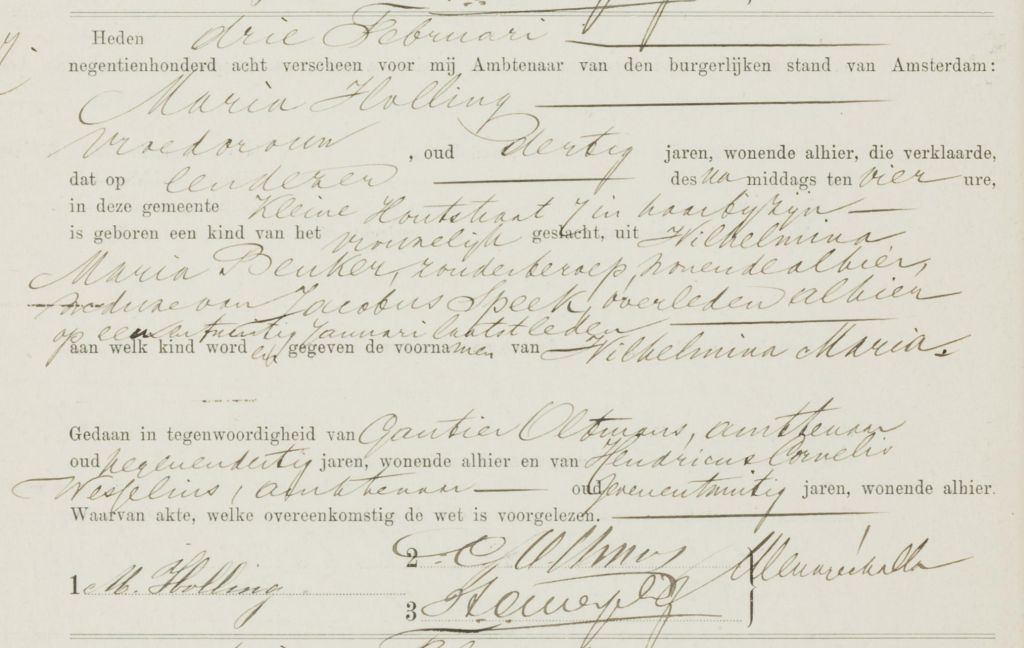 Heden drie Februari
negentienhonderd acht verscheen voor mij Ambtenaar van den burgerlijken stand van Amsterdam:
Maria Holling
vroedvrouw, oud dertig jaren, wonende alhier, die verklaarde,
dat op eendezer des na middags ten vier ure,
in deze gemeente Kleine Houtstraat 7 in haarbijzijn
is geboren een kind van het vrouwelijk geslacht, uit Wilhelmina
Maria Benker, zonderberoep, wonende alhier,
weduwe van Jacobus Speek, overleden alhier
op eenentwintig Januari laatstleden
aan welk kind worden gegeven de voornamen van Wilhelmina Maria.
Gedaan in tegenwoordigheid van Gautier Oltmans, ambtenaar
oud negenendertig jaren, wonende alhier en van Hendricus Cornelis
Wesselius, ambtenaar oud zevenentwintig jaren, wonende alhier.
Waarvan akte, welke overeenkomstig de wet is voorgelezen.
1 M. Holling
2
3